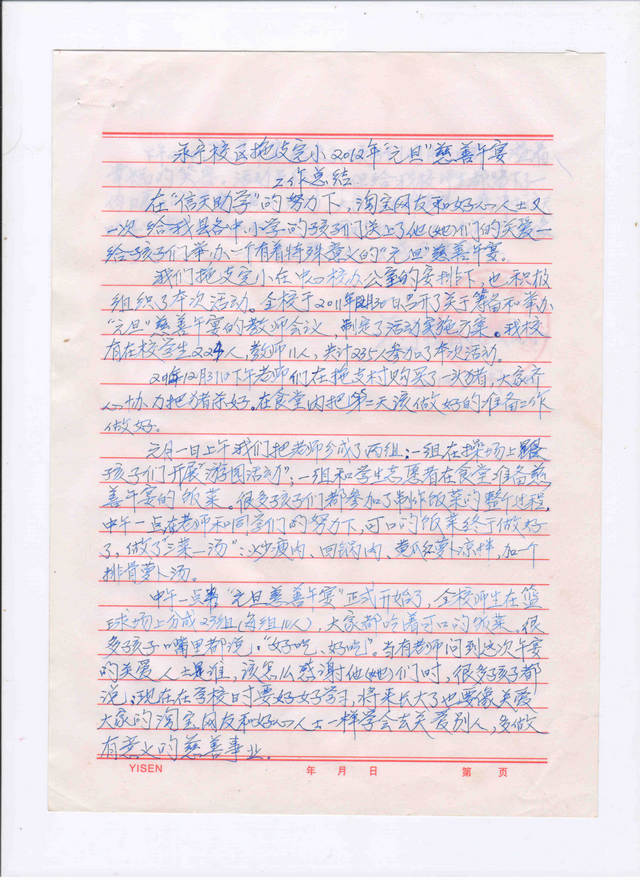 永宁校区拖支完小2012年"元旦"慈善午宴
工作总结
在"信天助学"的努力下,淘宝网友和好心人士又
一次给我县各中、小学的孩子们送上了他(她)们的关爱—
给孩子们举办一个有着特殊意义的"元旦"慈善午宴。
我们拖支完小在中心校办公室的安排下,也积极
组织了本次活动。全校于2011年12月30日召开了关于筹备和举办
"元旦"慈善午宴的教师会议,制定了活动实施方案。我校
有在校学生224人,教师11人,共计235人参加了本次活动。
2011年12月31日下午老师们在拖支村购买了一头猪,大家齐
心协力把猪杀好。在食堂内把第二天该做好的准备工作
做好。
元月一日上午我们把老师分成了两组:一组在操场上跟
孩子们开展"游园活动";一组和学生志愿者在食堂准备慈
善午宴的饭菜。很多孩子们都参加了制作饭菜的整个过程,
中午一点在老师和同学们的努力下,可口的饭菜终于做好
了,做了"三菜一汤":炒瘦肉、回锅肉、黄瓜红萝卜凉拌,加一个
排骨萝卜汤。
中午一点半"元旦慈善午宴"正式开始了,全校师生在篮
球场上分成23组(每组10人),大家都吃着可口的饭菜。很
多孩子口嘴里都说:"好吃、好吃"。当有老师问到这次午宴
的关爱人士是谁,该怎么感谢他(她)们时,很多孩子都
说:现在在学校时要好好学习,将来长大了也要像关爱
大家的淘宝网友和好心人士一样学会去关爱别人,多做
有意义的慈善事业。
YISEN 年 月 日 第 页